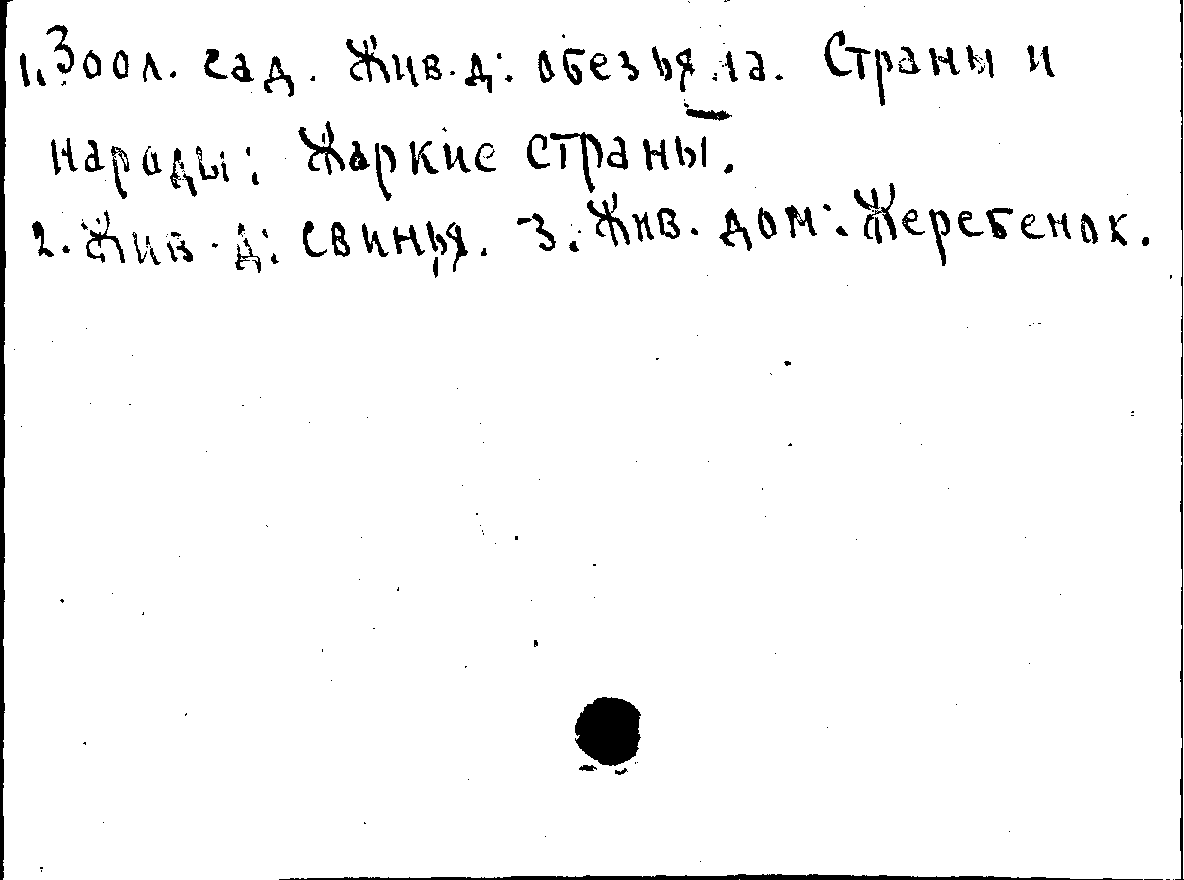 1. Зоол. сад. Жив. д: обезьяна. Страны и
народы: Жаркие страны.
2. Жив. д: свинья. 3. Жив. дом: Жеребенок.